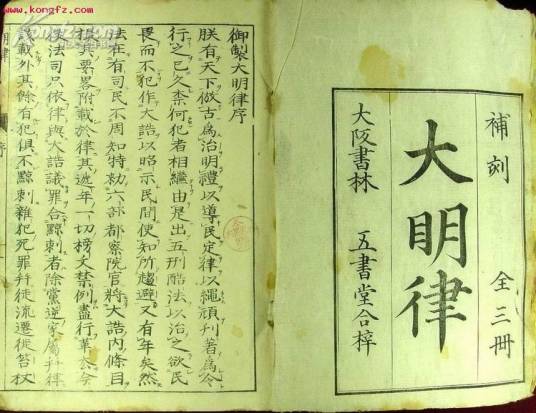 www.kongfz.com
補刻 全三冊
大明律
大阪書林 五書堂合梓
御製大明律序
朕有天下倣古爲治明禮以導民定律以繩頑刊著爲令
行之已久奈何犯者相繼由是出五刑酷法以治之欲民
畏而不犯作大誥以昭示民間使知所趨避又有年矣然
法在有司民不周知特勑六部都察院官將大誥內條目
撮其要畧附載於律其遞年一切榜文禁例盡行革去今
後法司只依律與大誥議罪合黥刺者除黨逆家屬幷律
該載外其餘有犯俱不黥刺雜犯死罪幷徒流遷徙笞杖
明律 序